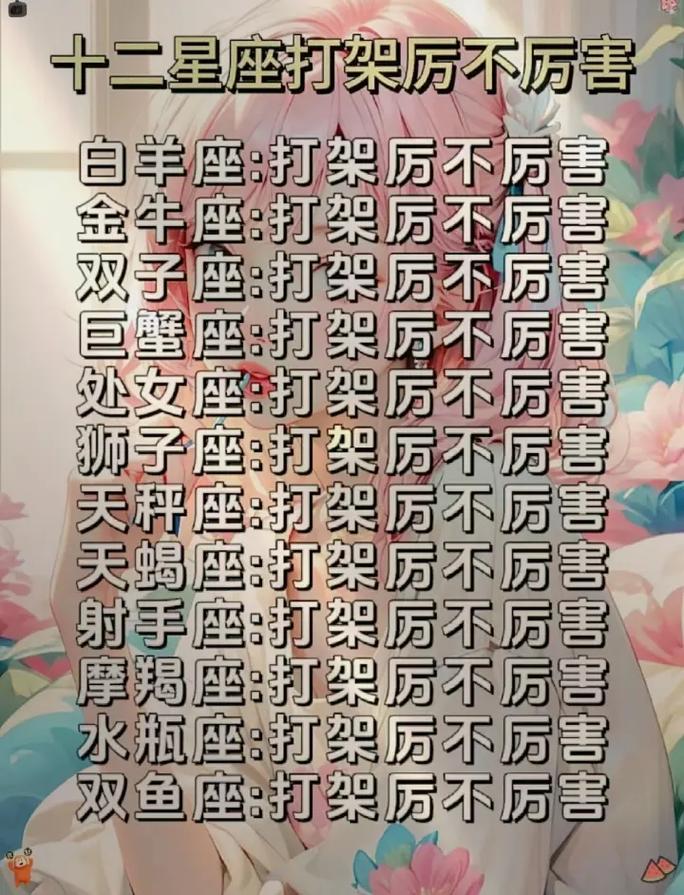 十二星座打架厉不厉害
白羊座:打架厉不厉害
金牛座:打架厉不厉害
双子座:打架厉不厉害
巨蟹座:打架厉不厉害
处女座:打架厉不厉害
狮子座:打架厉不厉害
天秤座:打架厉不厉害
天蝎座:打架厉不厉害
射手座:打架厉不厉害
摩羯座:打架厉不厉害
水瓶座:打架厉不厉害
双鱼座:打架厉不厉害